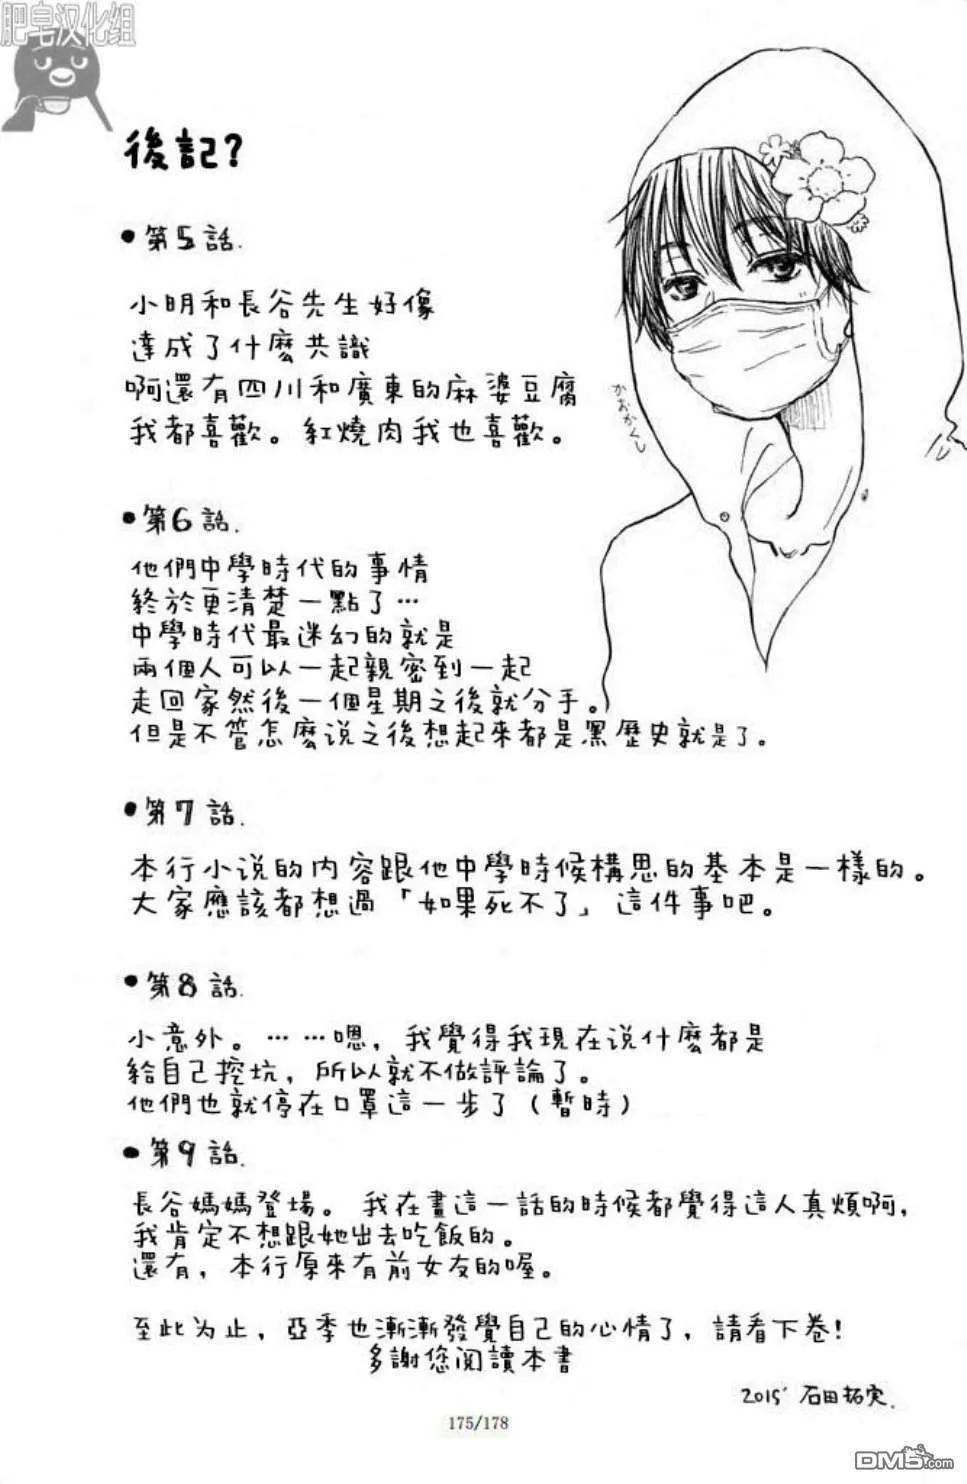 肥皂汉化组
後記?
•第5話.
小明和長谷先生好像
達成了什麼共識
啊還有四川和廣東的麻婆豆腐
我都喜歡。紅燒肉我也喜歡。
かおかくし
•第6話.
他們中學時代的事情
終於更清楚一點了…
中學時代最迷幻的就是
兩個人可以一起親密到一起
走回家然後一個星期之後就分手。)
但是不管怎麼说之後想起來都是黑歷史就是了。
•第7話.
本行小说的内容跟他中學時候構思的基本是一樣的。
大家應該都想過「如果死不了」這件事吧。
•第8話.
小意外。……嗯,我覺得我現在说什麼都是
給自己挖坑,所以就不做評論了。
他們也就停在口罩這一步了(暫時)
•第9話.
長谷媽媽登場。我在畫這一話的時候都覺得這人真煩啊,
我肯定不想跟她出去吃飯的。
還有,本行原來有前女友的喔。
至此为止,亞季也漸漸發覺自己的心情了,請看下卷!
多謝您阅讀本書
2015' 石田拓実.
175/178
DM5.com